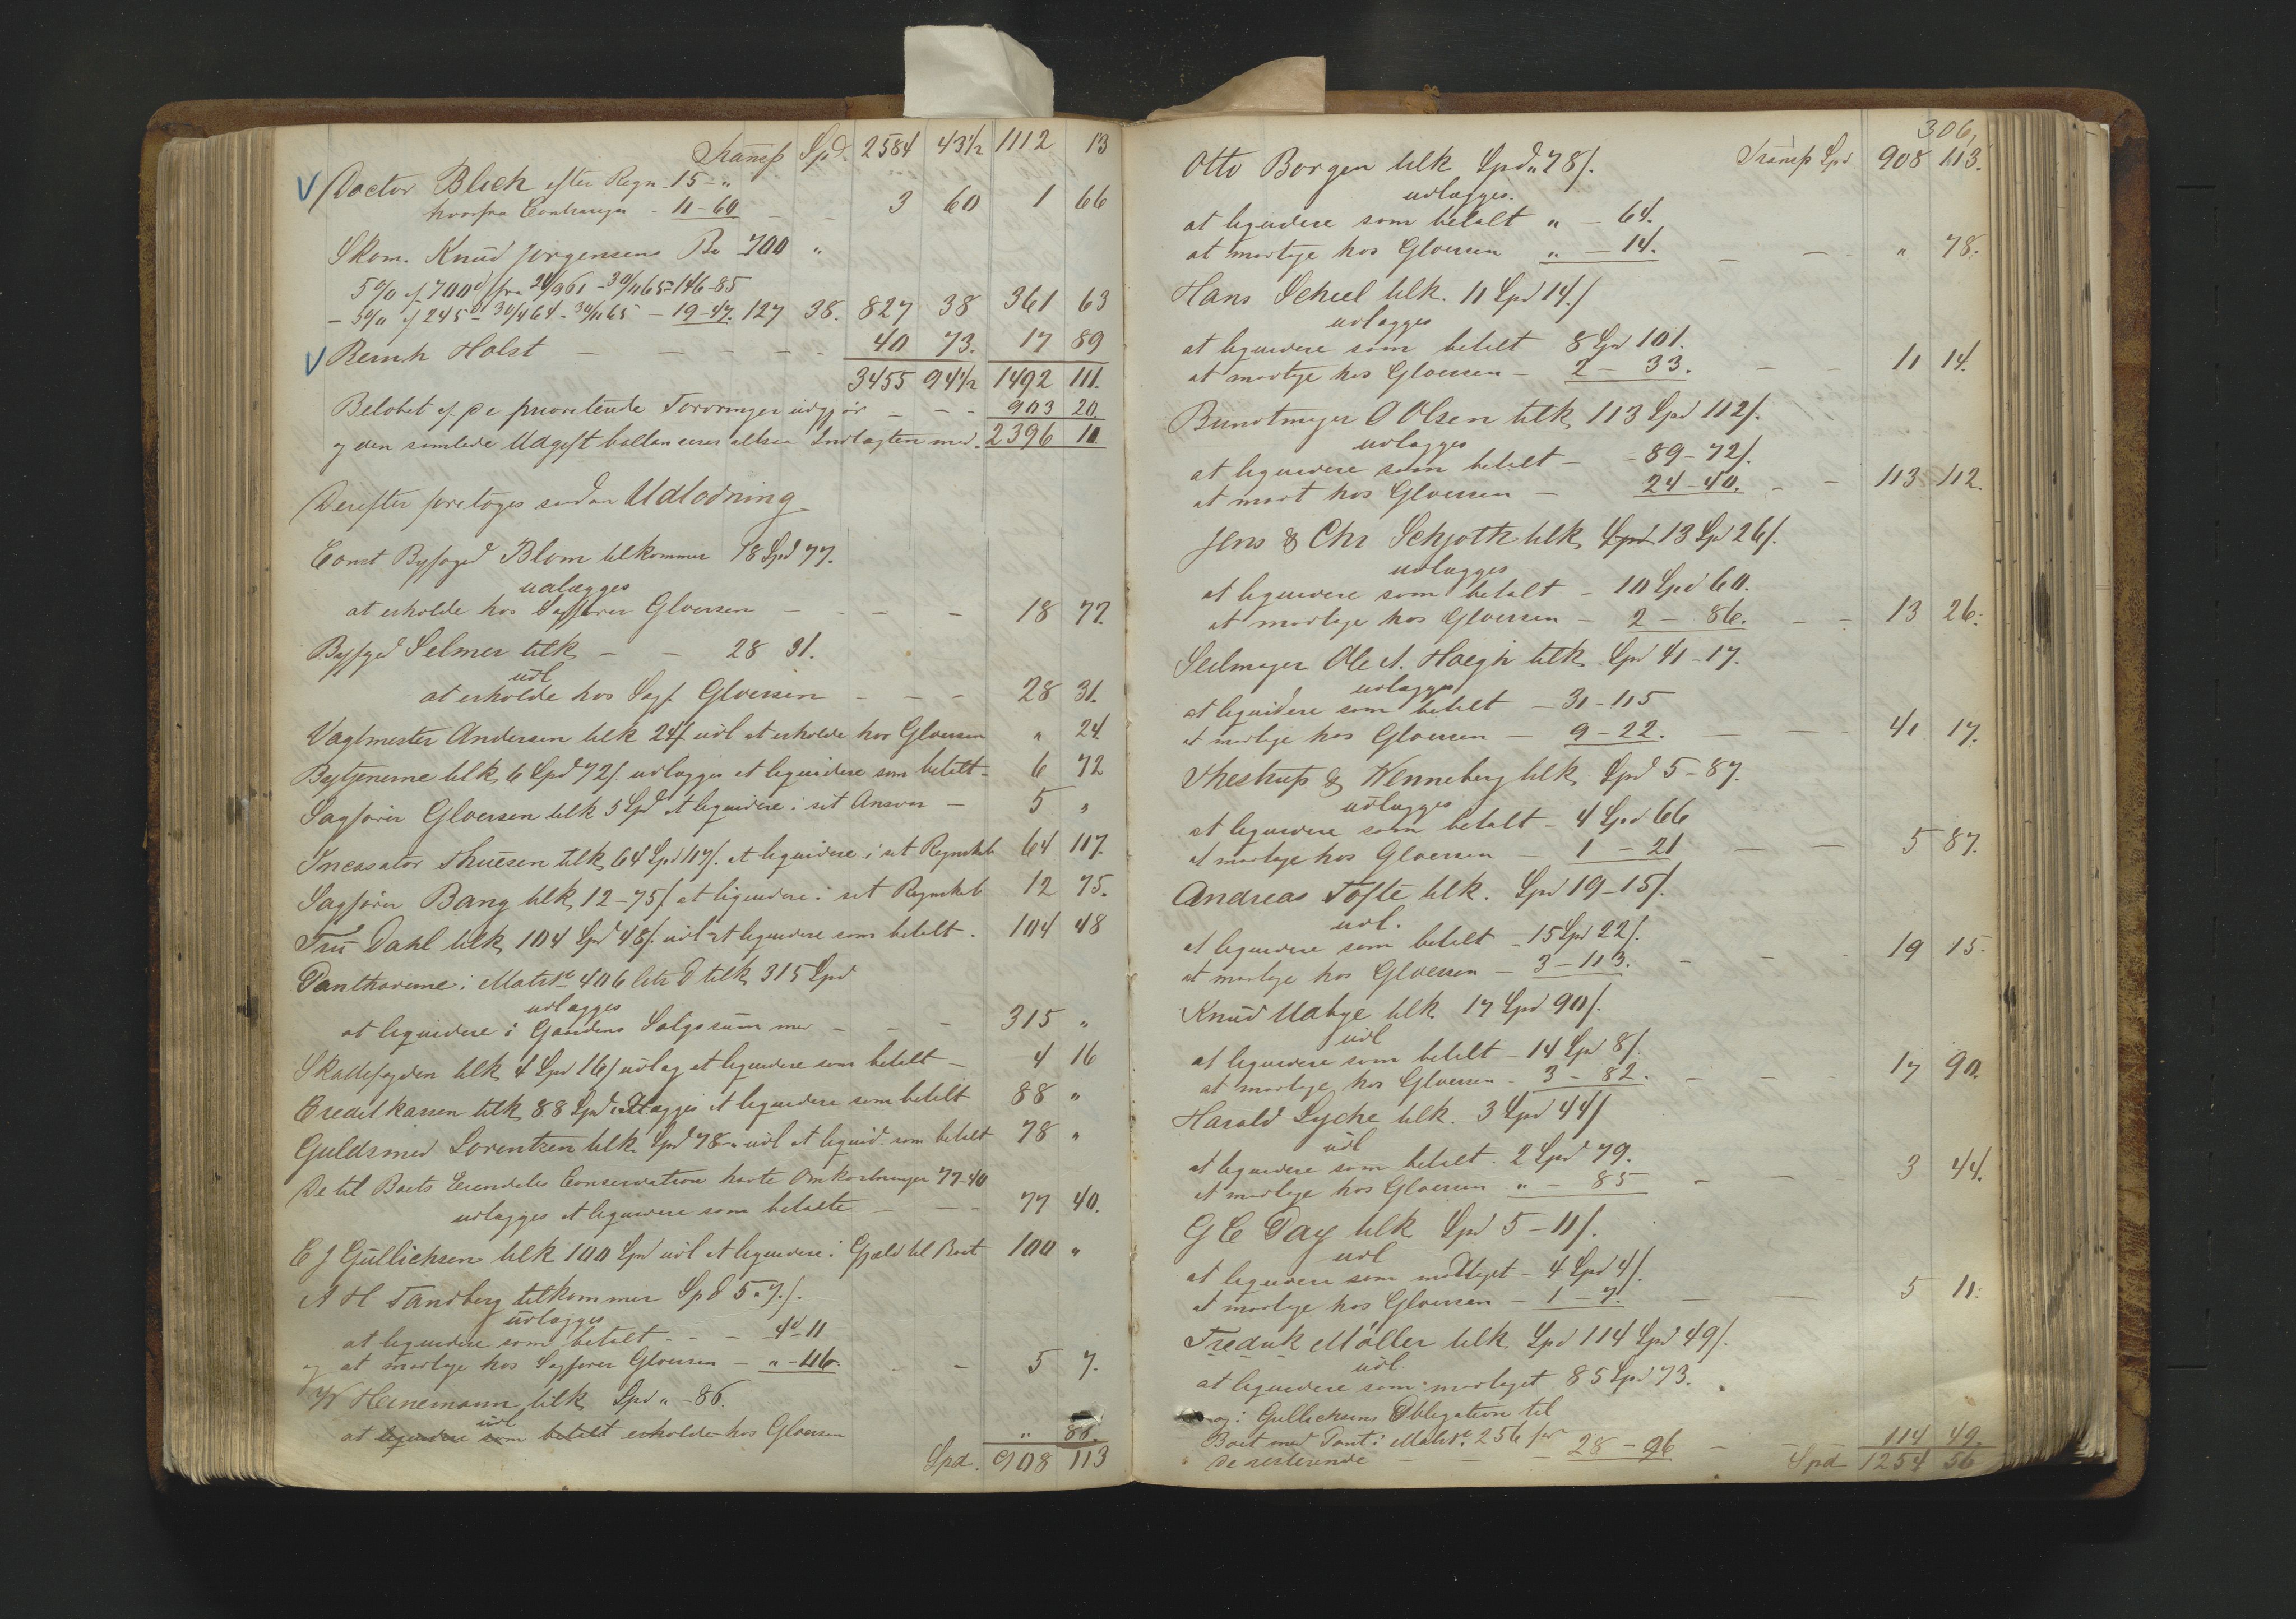 Transp Spd. 2584 43½ 1112 13
Doctor Blich efter Regn. 15 - "
hvorfra Contraregn - 11 - 60 - - 3 60 1 66
Skom. Knud Jørgensens Bo 700 "
5% af 700d fra 24/9 61 - 30/11 65 = 146-85
- 5% af 245d 30/4 64 - 30/11 65 - 19-47. 127 38. 827 38 361 63
Bernh Holst - - - - - 40 73. 17 89
3455 94½ 1492 111.
Beløbet af de prioriterede Fordringer udgjør - - - 903 20
og den samlede Udgift ballancerer altsaa Indtægten med. 2396 11
Derefter foretoges saadan Udlodning
Const Byfoged Blom tilkommer 18 Spd 77.
udlægges
at erholde hos Sagfører Gloersen - - - - 18 77.
Byfged Selmer tilk - - 28 31.
udl
at erholde hos Sagf Gloersen - - - 28 31.
Vagtmester Andersen tilk 24/ udl at erholde hos Gloersen " 24
Bytjenerne tilk 6 Spd 72/. udlægges at liquidere som betalt - 6 72
Sagfører Gloersen tilk 5 Spd at liquidere i sit Ansvar - 5 "
Incasator Thuesen tilk 64 Spd 117/. at liquidere i sit Regnskab 64 117.
Sagfører Bang tilk 12-75/ at liquidere i sit Regnskab 12 75.
Fru Dahl tilk 104 Spd 48/. udl at liquidere som betalt. 104 48
Panthaverne i Matr No 406 Litr D tilk 315 Spd
udlægges
at liquidere i Gaardens Salgssum med - - - 315 "
Skattefogden tilk 4 Spd 16/ udlag at liquidere som betalt - 4 16
Creditkassen tilk 88 Spd udlægges at liquidere som betalt 88 "
Guldsmed Lorentzen tilk Spd 78 - " udl at liquid. som betalt 78 "
De til Boets Eiendeles Conservation havte Omkostninger 77-40
udlægges at liquidere som betalte - - - 77 40.
E J Gullichsen tilk 100 Spd udl at liquidere i Gjæld til Boet 100 "
A H Tandberg tilkommer Spd 5. 7/.
udlægges
at liquidere som betalt - - - 4d 11
og at modtage hos Sagfører Gloersen - " - 116. - - 5 7.
W Heinemann tilk Spd " - 86.
udl
at liquidere som betalt erholde hos Gloersen " 86.
Spd. 908 113
306,
Otto Borgen tilk Spd " 78/. Transp Spd 908 113.
udlægges.
at liquidere som betalt " - 64.
at modtage hos Gloersen " - 14. - - " 78.
Hans Scheel tilk. 11 Spd 14/
udlægges
at liquidere som betalt 8 Spd 101.
at modtage hos Gloersen - 2 - 33. - - 11 14.
Bundtmager O Olsen tilk 113 Spd 112/.
udlægges
at liquidere som betalt - - 89-72/.
at modt hos Gloersen - 24-40. - - 113 112.
Jens & Chr Schjøth tilk Spd 13 Spd 26/.
udlægges
at liquidere som betalt - 10 Spd 60.
at modtage hos Gloersen - 2 - 86. - - 13 26.
Seilmager Ole A. Høegh tilk. Spd 41-17.
udlægges
at liquidere som betalt - 31-115
at modtage hos Gloersen - 9-22. - - 41 17.
Thestrup & Wenneberg tilk Spd 5-87.
udlægges
at liquidere som betalt - 4 Spd 66
at modtage hos Gloersen - 1 - 21 - - 5 87.
Andreas Tofte tilk. Spd 19-15/.
udl.
at liquidere som betalt - 15 Spd 22/.
at modtage hos Gloersen - 3-113. - - 19 15.
Knud tilk 17 Spd 90/.
udl
at liquidere som betalt - 14 Spd 8/.
at modtage hos Gloersen - 3 - 82. - - - 17 90.
Harald Lyche tilk. 3 Spd 44/
udl
at liquidere som betalt. 2 Spd 79.
at modtage hos Gloersen " - 85 - - 3 44.
G C Day tilk. Spd 5-11/.
udl
at liquidere som modtaget - 4 Spd 4/.
at modtage hos Gloersen - 1 - 7. - - 5 11.
Fredrik Møller tilk Spd 114 Spd 49/.
udl
at liquidere som modtaget 85 Spd 73.
og i Gullichsens Obligation til
Boet med Pant i Matr No. 256 for
de resterende - - - 28-96 - - 114 49.
Spd 1254 56